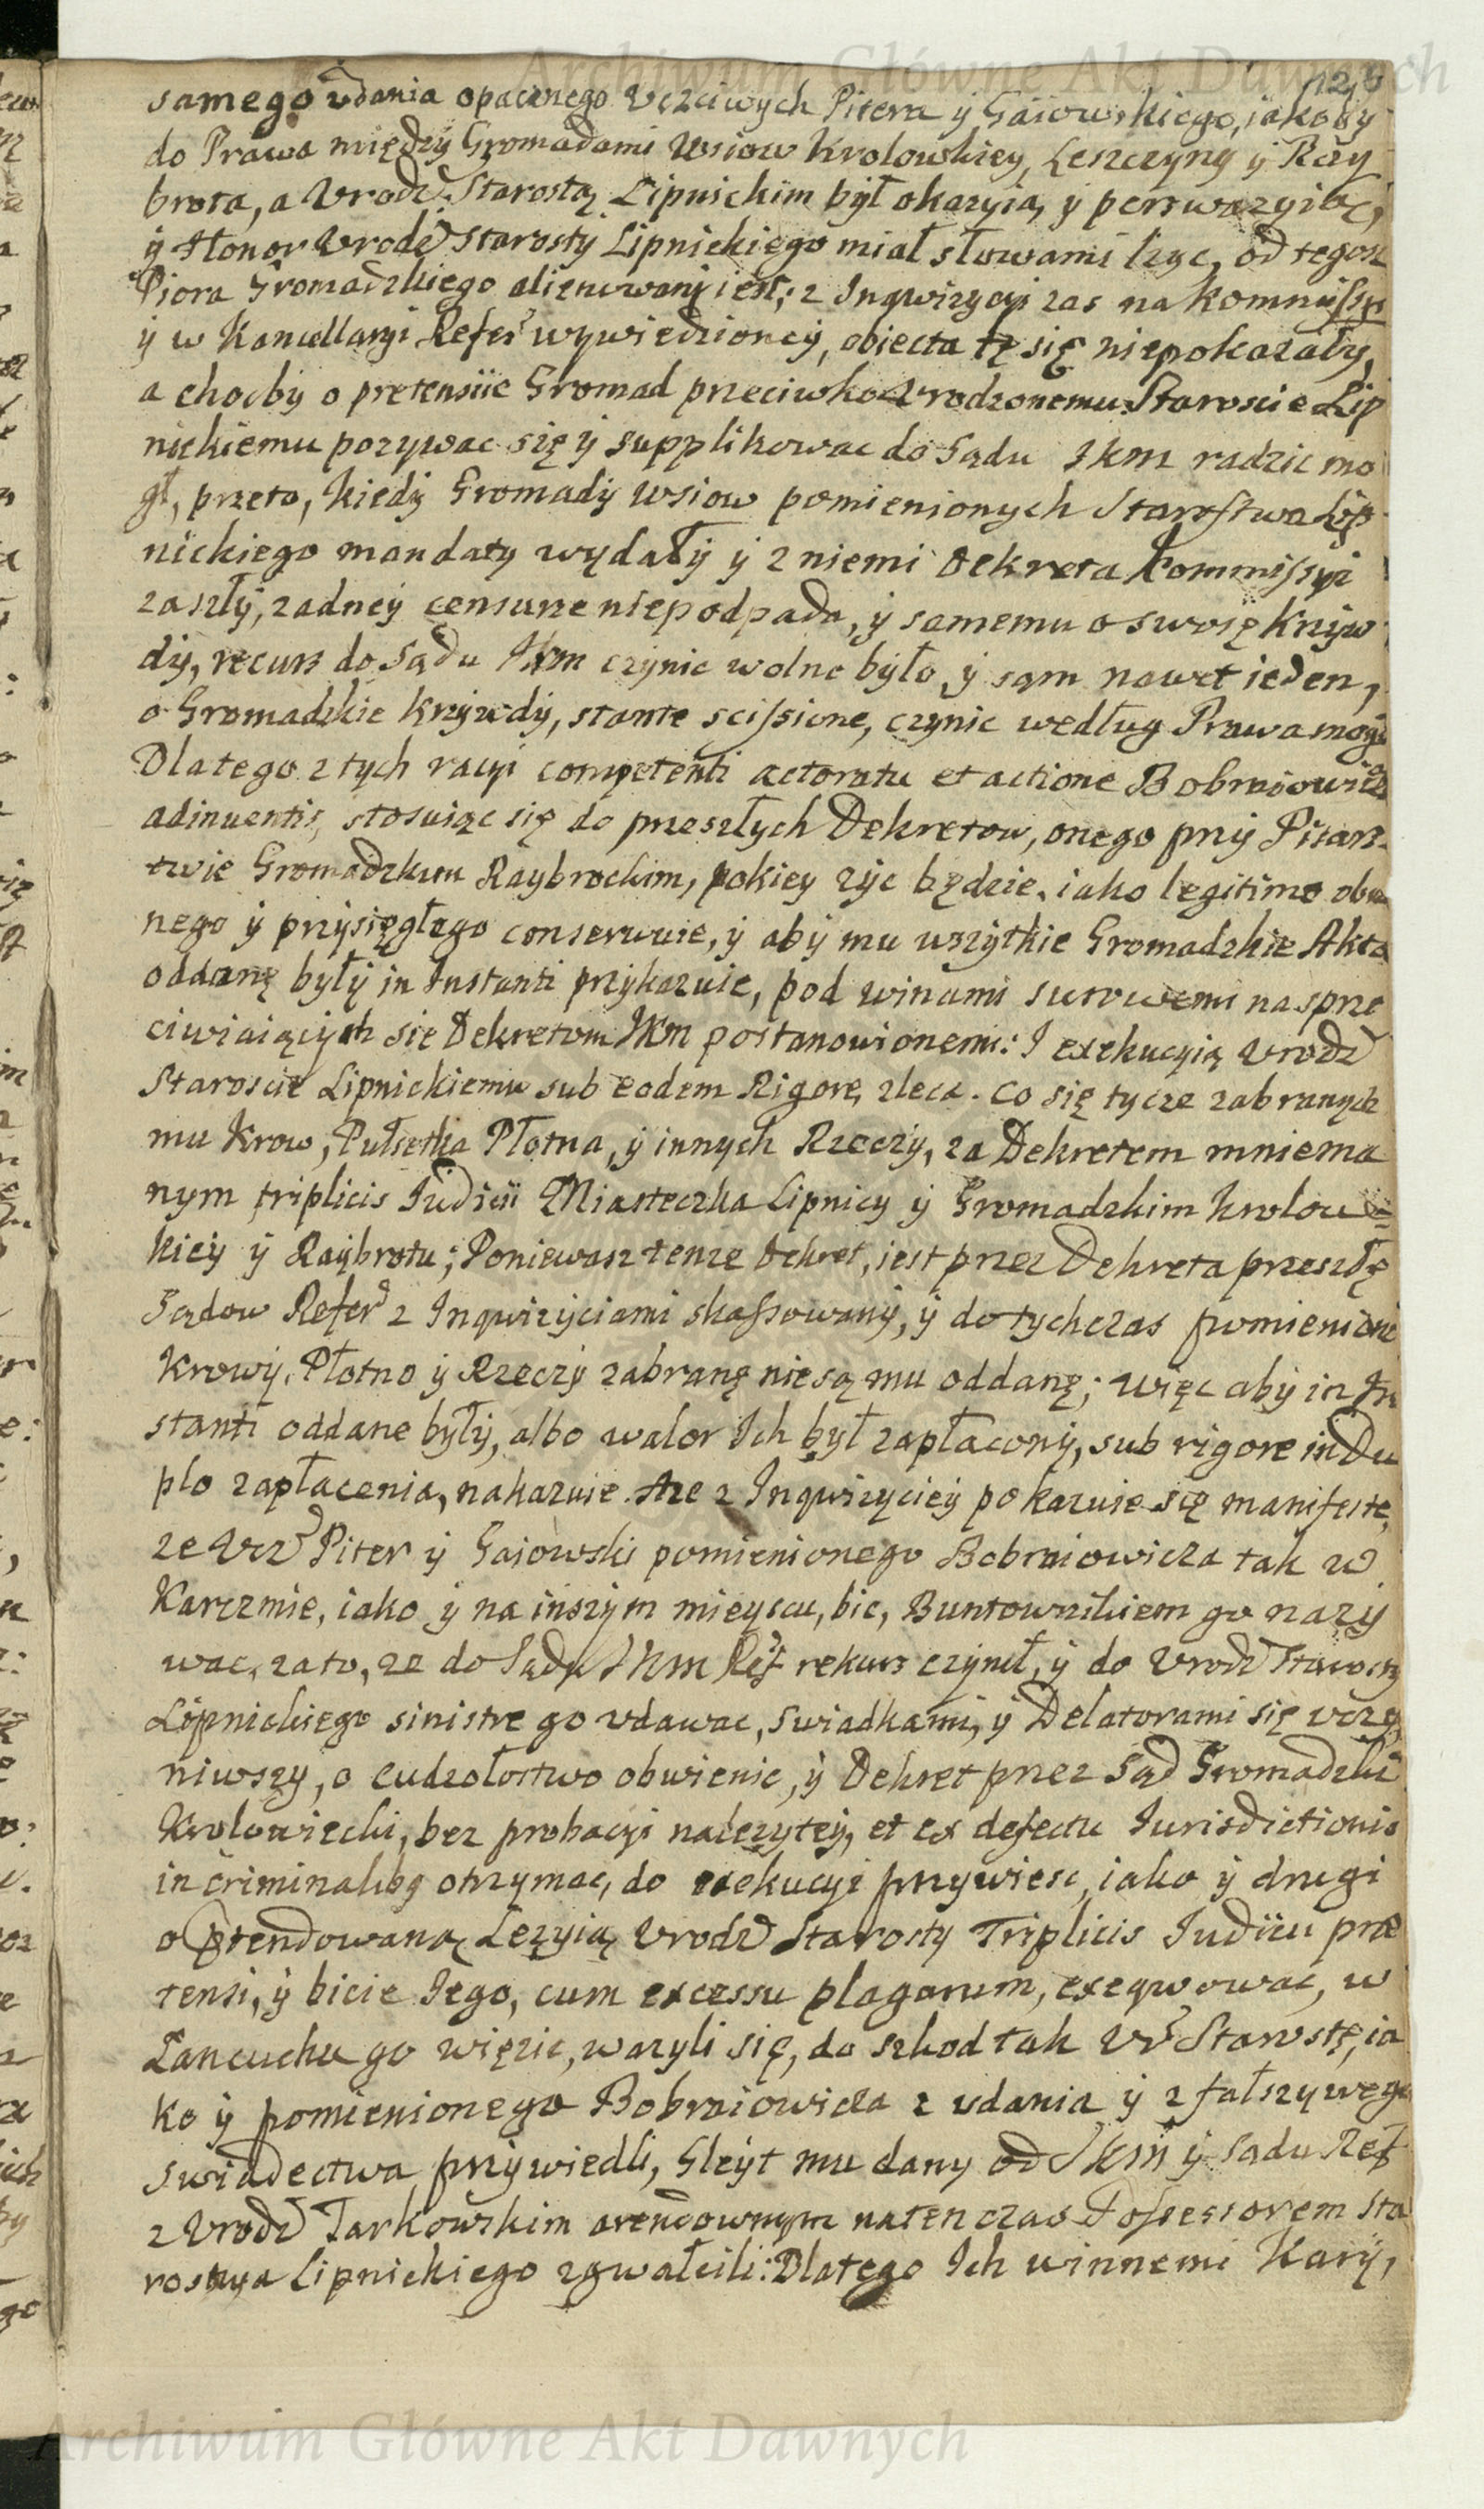 Archiwum Główne Akt Dawnych
samego vdania opacznego Vczciwych Pitera ÿ Gaiowskiego, iakoby
do Prawa międzÿ Gromadami Wsiow Krolowskiey, Leszczyny ÿ Ray
brota, a Vrodz. Starostą Lipnickim był okazyią, ÿ perswazyią,
ÿ Honor Vrodz Starosty Lipnickiego miał słowami lzyc, od tegosz
Piora Gromadzkiego alienowanÿ iest; z Inqwizycyi zas na Kommissyi
ÿ w Kancellaryi Refer wywiedzioneÿ, obiecta tę się niepokazałÿ,
a chocbÿ o pretensiie Gromad przeciwko Vrodzonemu Staroscie Lip
nickiemu pozywac się ÿ supplikowac do Sądu JKM radzic mo
gł, przeto, kiedÿ Gromadÿ Wsiow pomienionych Starostwa Lip
nickiego mandaty wydałÿ ÿ z niemi Dekreta Kommissyi
zaszłÿ, zadneÿ censurze niepodpada, ÿ samemu o swoię Krzÿw
dÿ, recurs do Sądu JKM czynic wolno było, ÿ sąm nawet ieden,
o Gromadzkie Krzÿwdÿ, stante scissione, czynic według Prawa mogł
Dlatego z tych racyi competenti actoratu et actione Bobraiowicza
adinuentis, stosuiąc się do przeszłych Dekretow, onego przÿ Pisars
twie Gromadzkim Raybrockim, pokiey zÿc będzie, iako legitime obra
nego ÿ przysięgłego conserwuie, ÿ abÿ mu wszytkie Gromadzkie Akta
oddanę bÿłÿ in Instanti przÿkazuie, pod winami surowemi na sprze
ciwiaiącÿch sie Dekretom JKM postanowionemi: I exekucyią Vrodz
Staroscie Lipnickiemu sub eodem Rigore, zleca. Co się tycze zabranych
mu Krow, Pułsetka Płotna, ÿ innych Rzeczÿ, za Dekretem mniema
nym triplicis Judicii Miasteczka Lipnicy ÿ Gromadzkim Krolow=
kieÿ ÿ Raÿbrotu; Poniewasz tenze Dekret, iest przez Dekreta przeszłę
Sądow Refer z Inqwizÿciami skassowanÿ, ÿ dotychczas pomienionę
Krowÿ, Płotno ÿ Rzeczÿ zabranę niesą mu oddanę; więc abÿ in In
stanti oddane bÿłÿ, albo walor Ich był zapłaconÿ, sub rigore in Du
plo zapłacenia, nakazuie. Aze z Inqwizycieÿ pokazuie się manifeste,
ze Vcz Piter ÿ Gaiowski pomienionego Bobraiowicza tak w
Karczmie, iako ÿ na inszÿm mieyscu, bic, Buntownikiem go nazÿ
wac, zato, ze do Sądu JKM Ref rekurs czynił, ÿ do Vrodz Starosty
Lipnickiego sinistre go vdawac, swiadkami, ÿ Delatorami się vczy
niwszy, o cudzołostwo obwienic, ÿ Dekret przez Sąd Gromadzki
Krolowiecki, bez probacyi nalezyteÿ, et ex defectu Iurisdictionis
in criminalibus otrzymac, do exekucyi przywiesc, iako ÿ drugi
o prtendowaną Lezyią Vrodz Starosty Triplicis Judicii præ
tensi, ÿ bicie Jego, cum excessu plagarum, exeqwowac, w
Łancuchu go więzic, wazyli się, do szkod tak Vr Starostę, ia
ko ÿ pomienionego Bobraiowicza z vdania ÿ z fałszywego
swiadectwa przÿwiedli, Gleÿt mu dany od JKM ÿ Sądu Ref
z Vrodz Tarkowskim arendownym natenczas Possessorem Sta
rostwa Lipnickiego zgwałcili: Dlatego Ich winnemi Karÿ,
Archiwum Główne Akt Dawnych